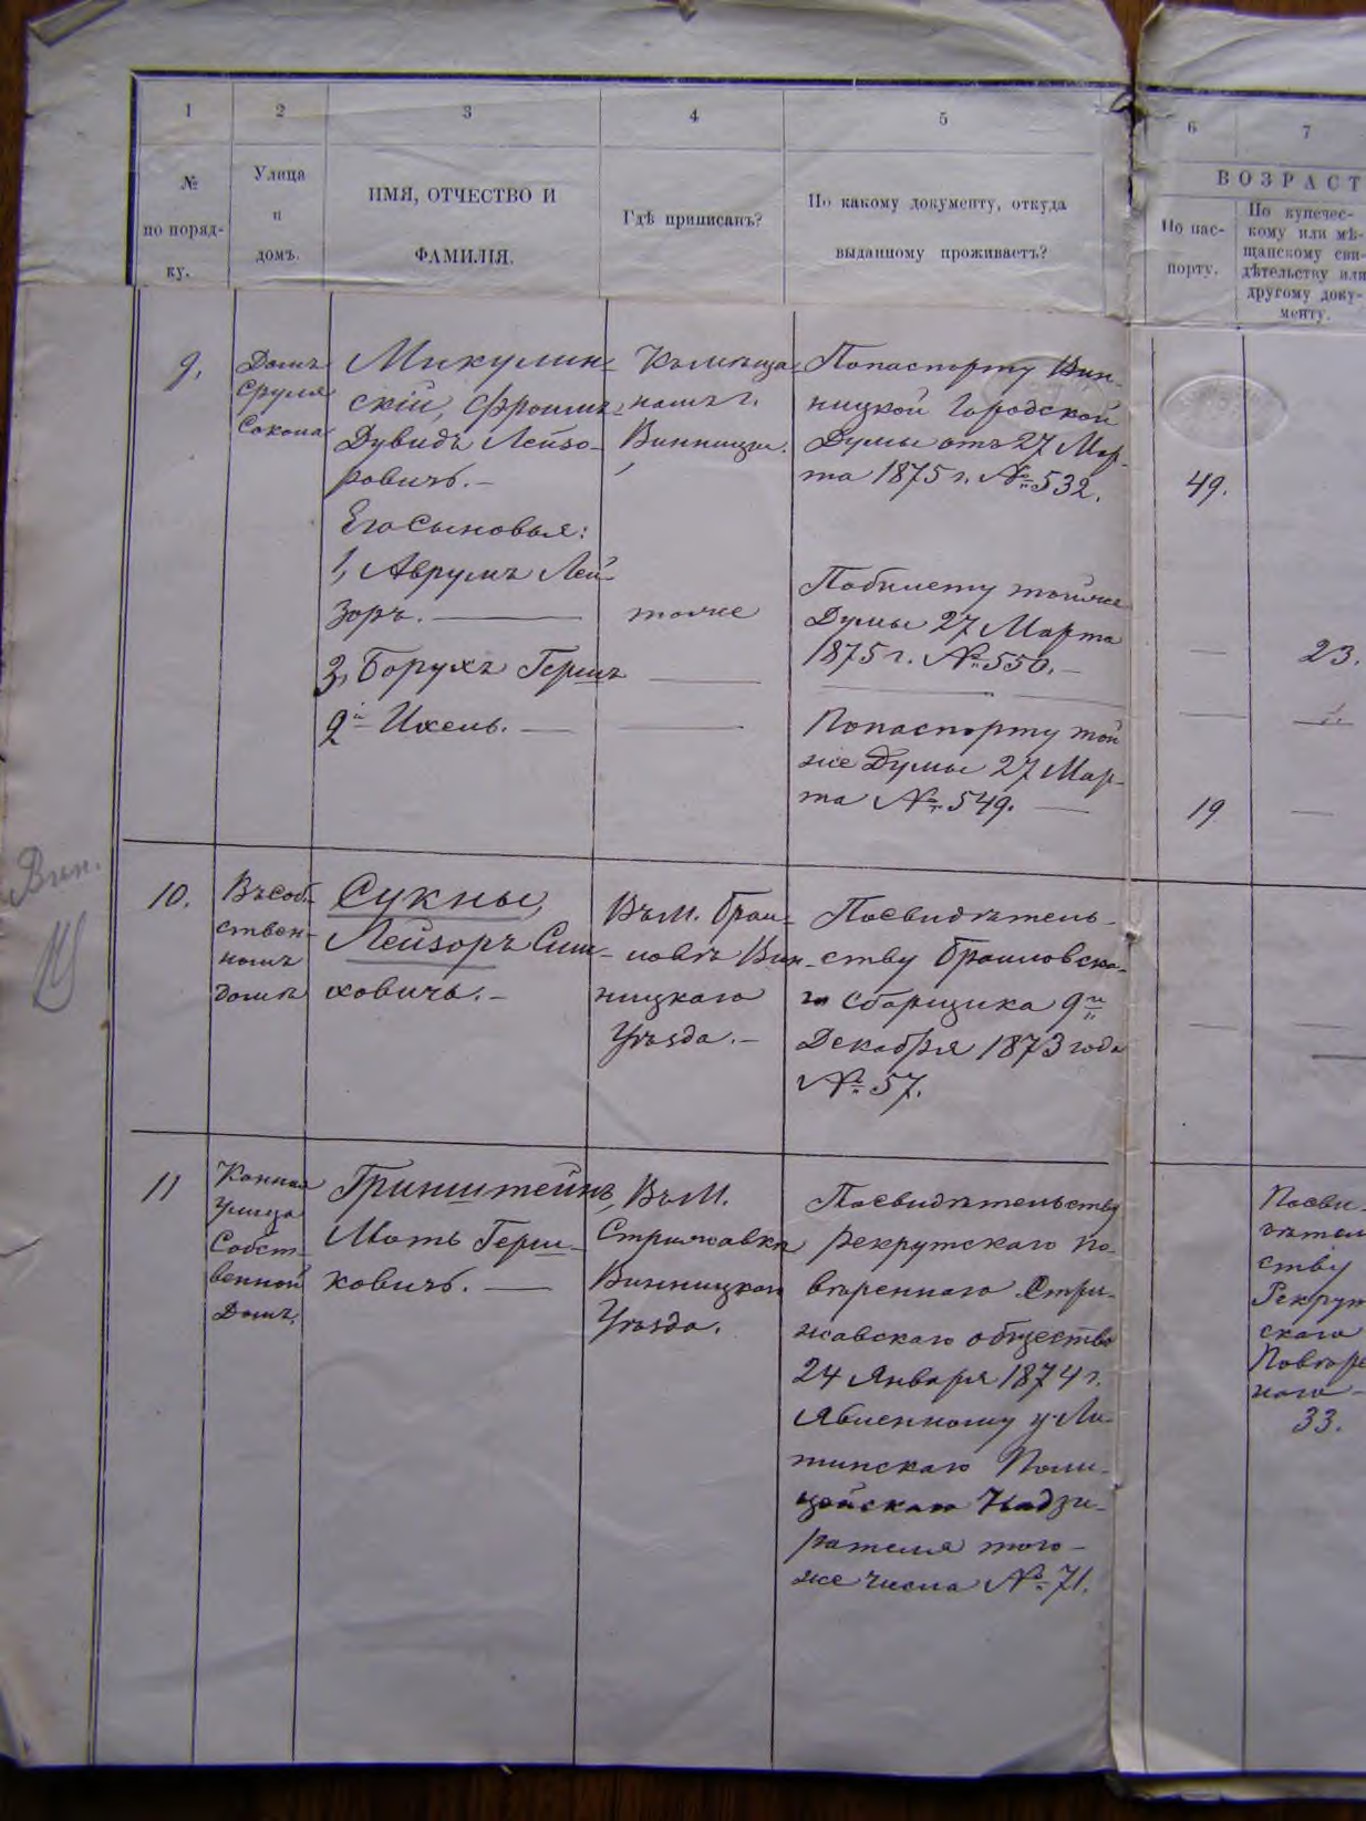 1
2
3
4
5
6
7
№
по поряд-
ку.
Улица
и
домъ.
ИМЯ, ОТЧЕСТВО И
ФАМИЛІЯ.
Гдѣ приписанъ?
По какому документу, откуда
выданному проживаетъ?
ВОЗРАСТ
По пас-
порту.
По купечес-
кому или мѣ-
щанскому сви-
дѣтельству или
другому доку-
менту.
9.
Домъ
Сруля
Сокола
Микулин-
скій, Фроимъ
Дувидъ Лейзо-
ровичъ.-
Его Сыновья:
1, Аврумъ Лей-
зоръ.
3, Борухъ Гершъ
2й Ихель.
Къ мѣща-
намъ г.
Винницы.
тоже
По паспорту Вин-
ницкой Городской
Думы отъ 27 Мар-
та 1875 г. № 532.
По билету тойже
Думы 27 Марта
1875 г. № 550.-
По паспорту той
же Думы 27 Мар-
та № 549.
49.
23.
19
Вин.
10.
Въ соб-
ствен-
номъ
домѣ
Сукны,
Лейзоръ Сим-
ховичъ.-
Въ М. Браи-
ловѣ Вин-
ницкаго
Уѣзда.-
По свидѣтель-
ству Браиловска-
го Сборщика 9го
Декабря 1873 года
№ 57.
11
Конная
улица
Собст-
венной
Домъ.
Гринштейнъ,
Моть Герш-
ковичъ.
Въ М.
Стрижавки
Винницкаго
Уѣзда.
По свидѣтельству
рекрутскаго по-
вѣреннаго Стри-
жавскаго общества
24 Января 1874 г.
Явленному у Ли-
тинскаго Поли-
цейскаго Надзи-
рателя того-
же числа № 71.
По сви-
дѣтель
ству
Рекрут
скаго
Повѣре
наго-
33.